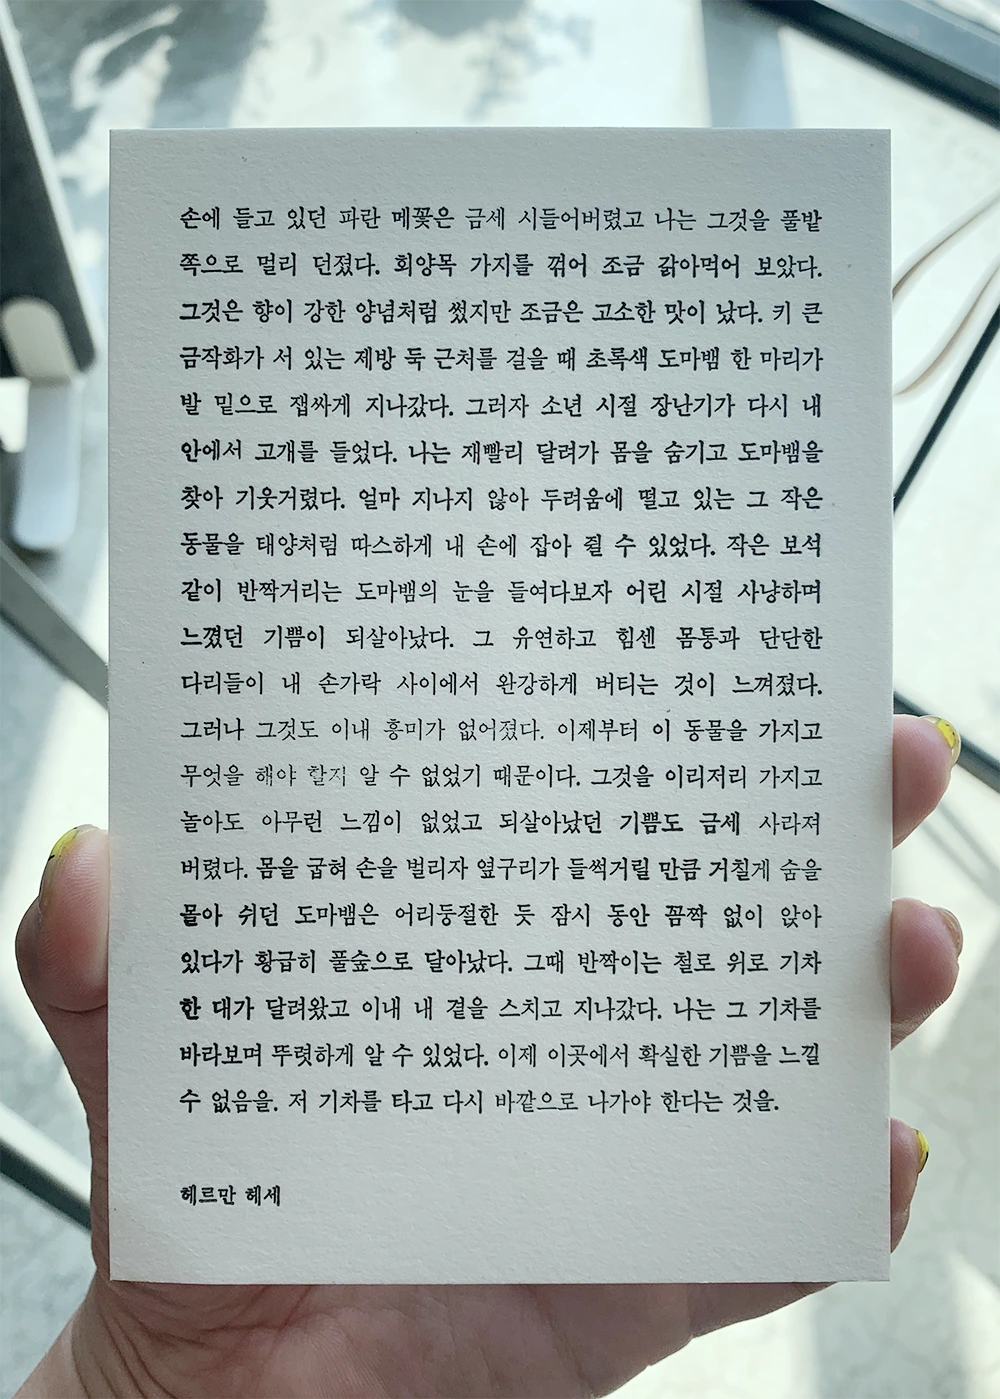 손에 들고 있던 파란 메꽃은 금세 시들어버렸고 나는 그것을 풀밭
쪽으로 멀리 던졌다. 회양목 가지를 꺾어 조금 갉아먹어 보았다.
그것은 향이 강한 양념처럼 썼지만 조금은 고소한 맛이 났다. 키 큰
금작화가 서 있는 제방 둑 근처를 걸을 때 초록색 도마뱀 한 마리가
발 밑으로 잽싸게 지나갔다. 그러자 소년 시절 장난기가 다시 내
안에서 고개를 들었다. 나는 재빨리 달려가 몸을 숨기고 도마뱀을
찾아 기웃거렸다. 얼마 지나지 않아 두려움에 떨고 있는 그 작은
동물을 태양처럼 따스하게 내 손에 잡아 쥘 수 있었다. 작은 보석
같이 반짝거리는 도마뱀의 눈을 들여다보자 어린 시절 사냥하며
느꼈던 기쁨이 되살아났다. 그 유연하고 힘센 몸통과 단단한
다리들이 내 손가락 사이에서 완강하게 버티는 것이 느껴졌다.
그러나 그것도 이내 흥미가 없어졌다. 이제부터 이 동물을 가지고
무엇을 해야 할지 알 수 없었기 때문이다. 그것을 이리저리 가지고
놀아도 아무런 느낌이 없었고 되살아났던 기쁨도 금세 사라져
버렸다. 몸을 굽혀 손을 벌리자 옆구리가 들썩거릴 만큼 거칠게 숨을
몰아 쉬던 도마뱀은 어리둥절한 듯 잠시 동안 꼼짝 없이 앉아
있다가 황급히 풀숲으로 달아났다. 그때 반짝이는 철로 위로 기차
한 대가 달려왔고 이내 내 곁을 스치고 지나갔다. 나는 그 기차를
바라보며 뚜렷하게 알 수 있었다. 이제 이곳에서 확실한 기쁨을 느낄
수 없음을. 저 기차를 타고 다시 바깥으로 나가야 한다는 것을.
헤르만 헤세